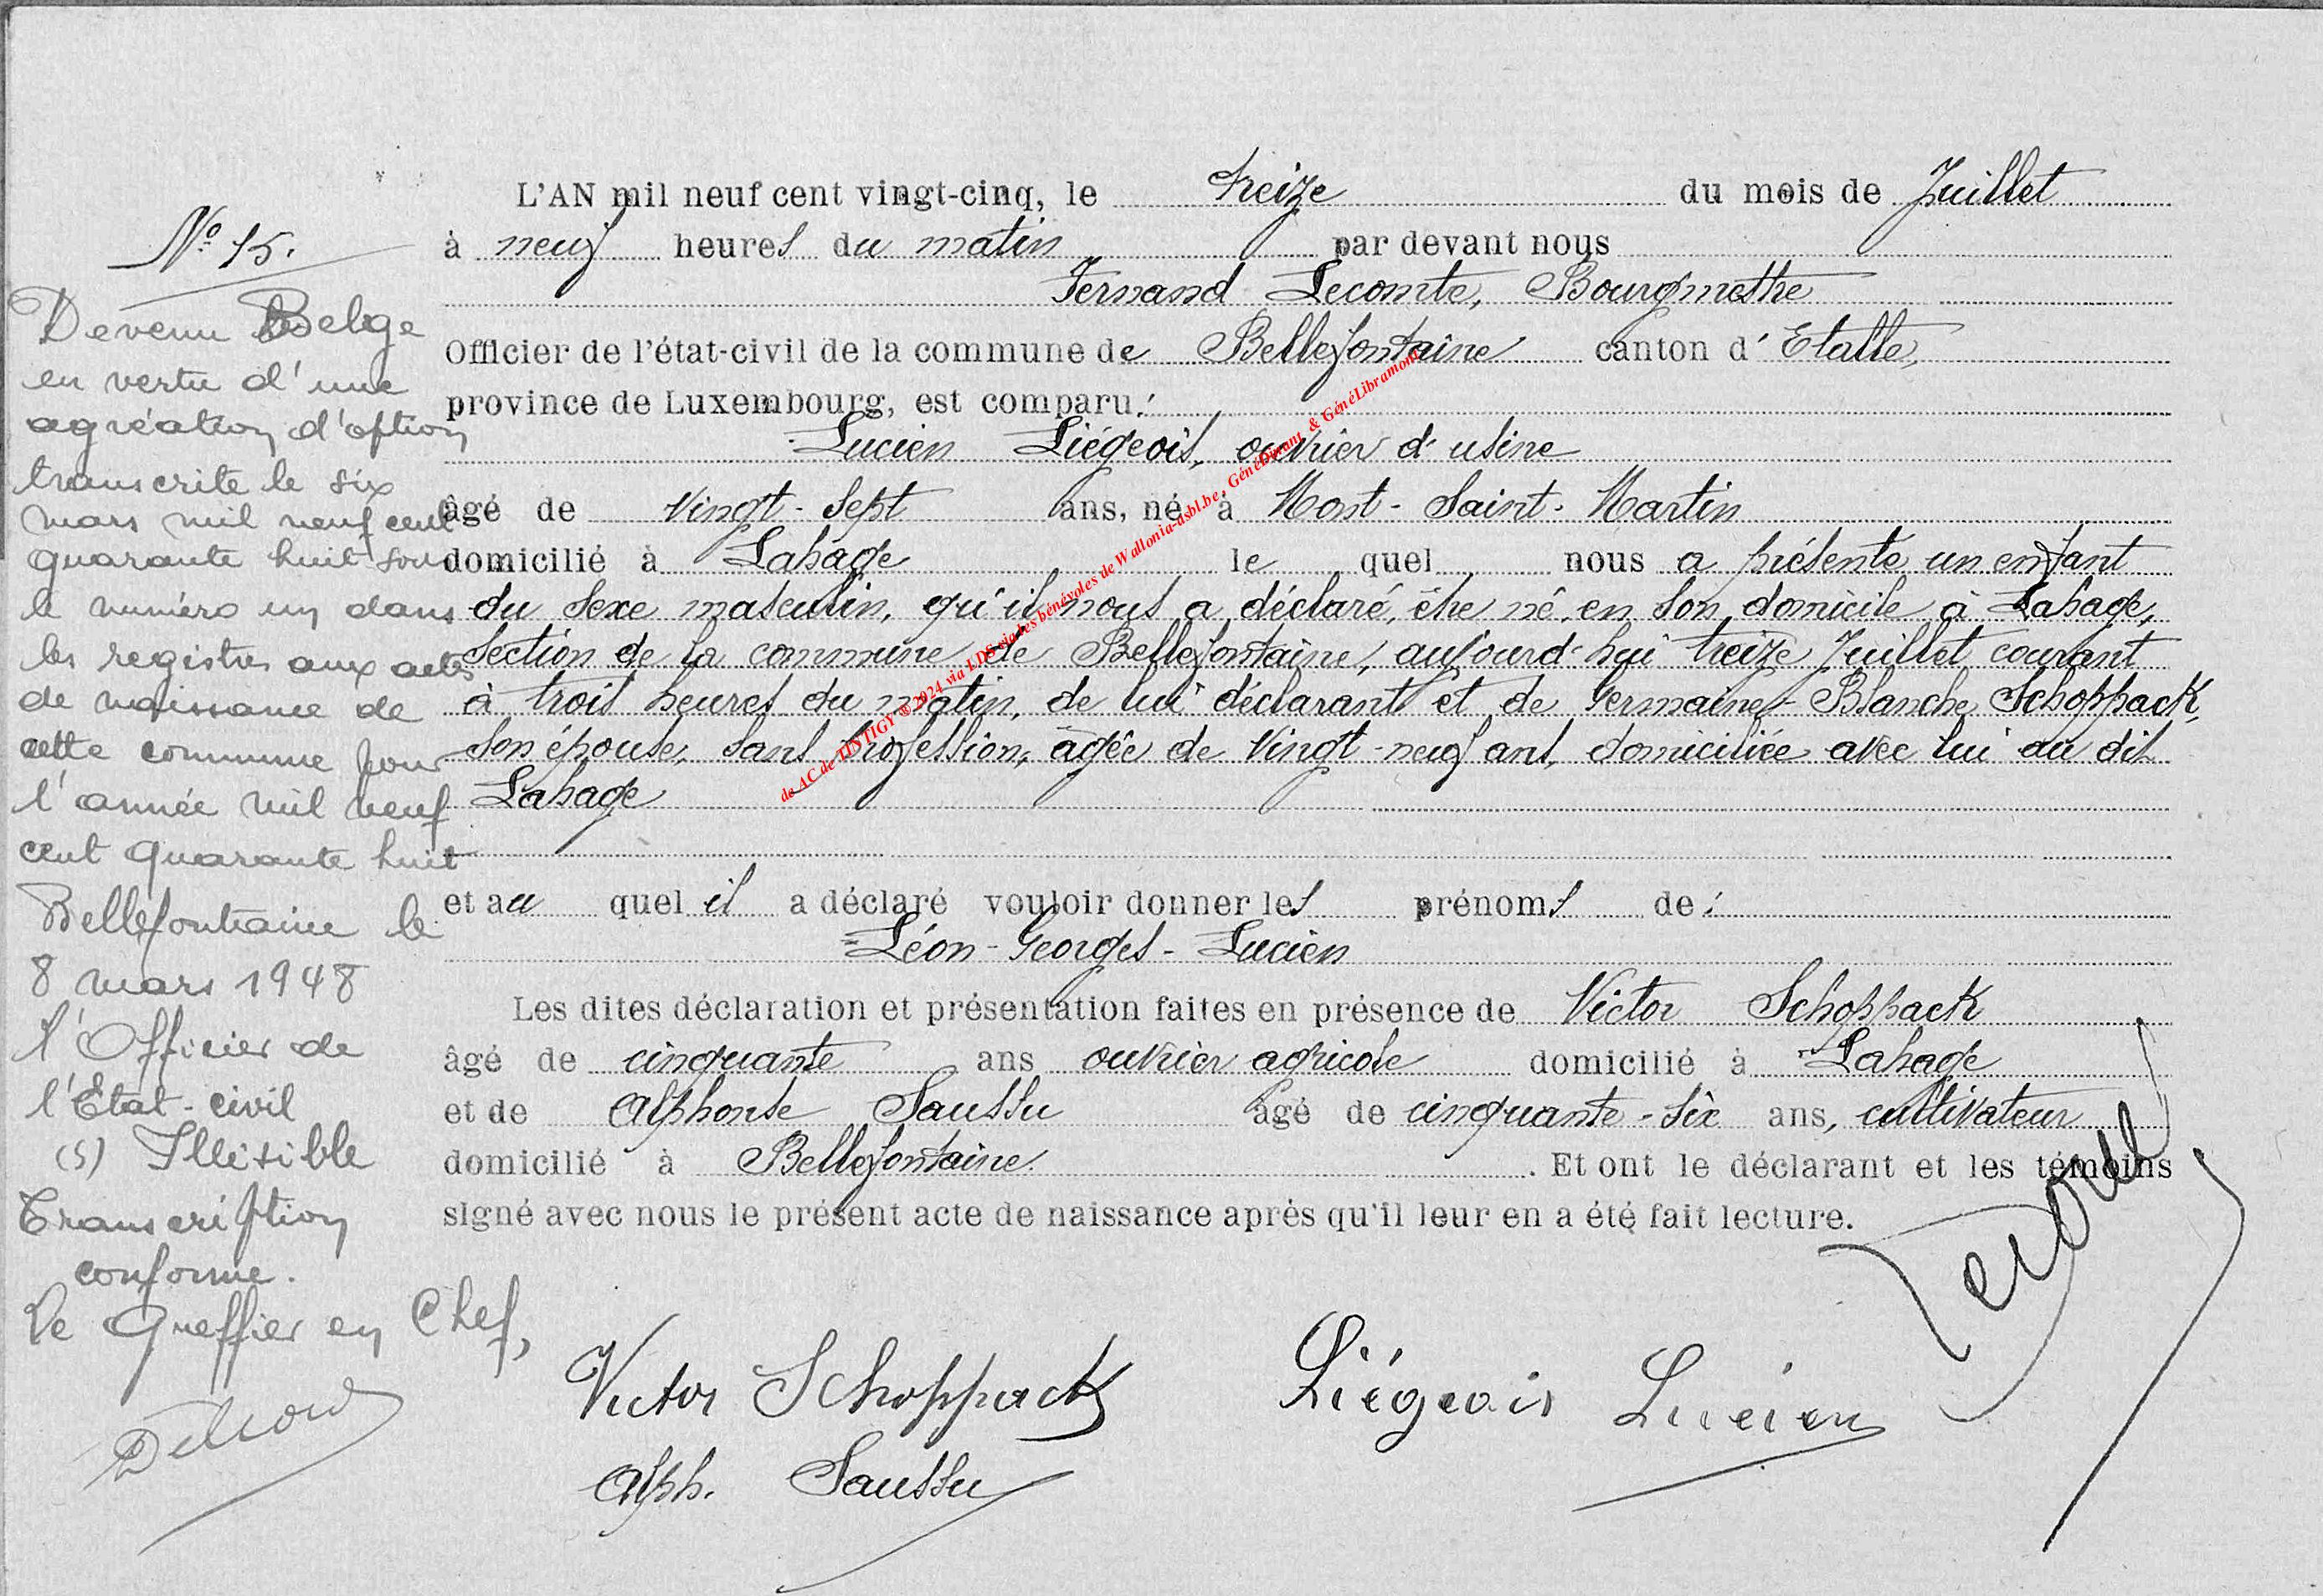 N° 15.
Devenu Belge
en vertu d'une
agréation d'option
transcrite le six
mars mil neuf cent
quarante huit sous
le numéro un dans
les registres aux actes
de naissance de
cette commune pour
l'année mil neuf
cent quarante huit
Bellefontaine le
8 mars 1948
l'Officier de
l'Etat-civil
(s) Illisible
Transcription
conforme.
Le Greffier en Chef,
L'AN mil neuf cent vingt-cinq, le treize du mois de Juillet
à neuf heures du matin par devant nous
Fernand Lecomte, Bourgmestre
Officier de l'état-civil de la commune de Bellefontaine canton d'Etalle,
province de Luxembourg, est comparu:
Lucien Liégeois, ouvrier d'usine
âgé de vingt-sept ans, né à Mont-Saint-Martin
domicilié à Lahage le quel nous a présenté un enfant
du sexe masculin, qu'il nous a déclaré, être né, en son domicile à Lahage,
section de la commune de Bellefontaine, aujourd'hui treize Juillet courant
à trois heures du matin, de lui déclarant et de Germaine-Blanche Schoppack,
son épouse, sans profession, âgée de vingt-neuf ans, domiciliée avec lui au dit
Lahage
et au quel il a déclaré vouloir donner les prénoms de:
=Léon-Georges-Lucien
Les dites déclaration et présentation faites en présence de Victor Schoppack
âgé de cinquante ans ouvrier agricole domicilié à Lahage
et de Alphonse Saussu âgé de cinquante-six ans, cultivateur
domicilié à Bellefontaine. . Et ont le déclarant et les témoins
signé avec nous le présent acte de naissance après qu'il leur en a été fait lecture.
Victor Schoppack Liégeois Lucien
Alph. Saussu
de AC de TINTIGY ©2024 via LDS via les bénévoles de Wallonia-asbl.be, GénéDinant & GénéLibramont